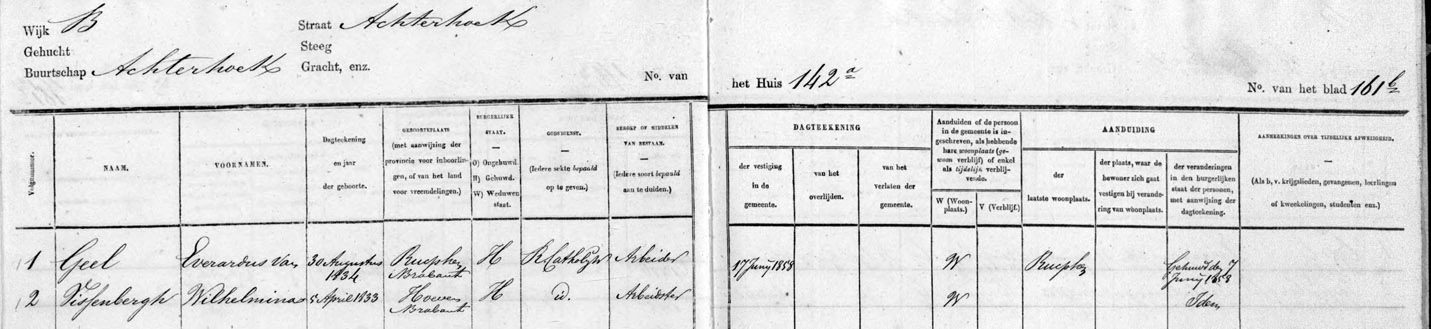 Wijk B
Straat Achterhoek
Gehucht
Steeg
Buurtschap Achterhoek
Gracht, enz.
No. van het Huis 142a
No. van het blad 161b
Volgnummer.
NAAM.
VOORNAMEN.
Dagteekening en jaar der geboorte.
GEBOORTEPLAATS (met aanwijzing der provincie voor inboorlingen, of van het land voor vreemdelingen.)
BURGERLIJKE STAAT. — O) Ongehuwd. H) Gehuwd. W) Weduwenstaat.
GODSDIENST. — (Iedere sekte bepaald op te geven.)
BEROEP OF MIDDELEN VAN BESTAAN. — (Iedere soort bepaald aan te duiden.)
DAGTEEKENING
der vestiging in de gemeente.
van het overlijden.
van het verlaten der gemeente.
Aanduiden of de persoon in de gemeente is ingeschreven, als hebbende hare woonplaats (gewoon verblijf) of enkel als tijdelijk verblijvende.
W (Woonplaats.)
V (Verblijf.)
AANDUIDING
der laatste woonplaats.
der plaats, waar de bewoner zich gaat vestigen bij verandering van woonplaats.
der veranderingen in den burgerlijken staat der personen, met aanwijzing der dagteekening.
AANMERKINGEN OVER TIJDELIJKE AFWEZIGHEID. — (Als b, v. krijgslieden, gevangenen, leerlingen of kweekelingen, studenten enz.)
1 Geel Everardus van 30 Augustus 1834 Rucphen Brabant H R Catholijk Arbeider 17 Junij 1858 W Rucphen Gehuwd den 7 Junij 1858
2 Wilhelmina 5 April 1833 Hoeven Brabant H id. Arbeidster W Idem